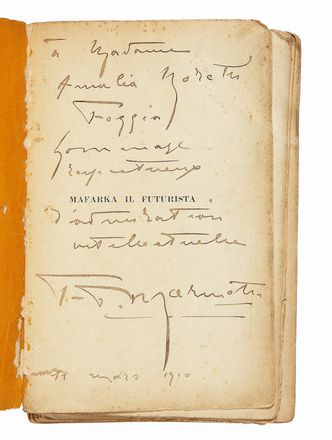 à Madame
Amalia Moretti
Foggia
hommage
respectueux
MAFARKA IL FUTURISTA
d'admiration
intellectuelle
F. T. Marinetti
mars 1910